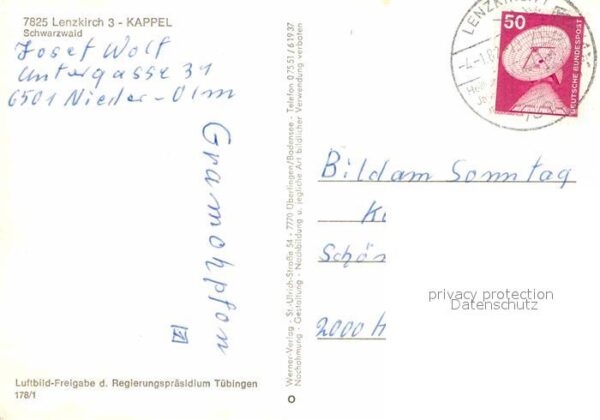 7825 Lenzkirch 3 - KAPPEL
Schwarzwald
Josef Wolf
Untergasse 31
6501 Nieder-Olm
Gramohpfon
Luftbild-Freigabe d. Regierungspräsidium Tübingen
178/1
Werner-Verlag - St.-Ulrich-Straße 54 - 7770 Überlingen/Bodensee - Telefon 07551/61937
Nachahmung - Gestaltung - Nachbildung u. jegliche Art bildlicher Verwendung verboten
LENZKIRCH
50
DEUTSCHE BUNDESPOST
Bild am Sonntag
Schön
2000 H
privacy protection
Datenschutz